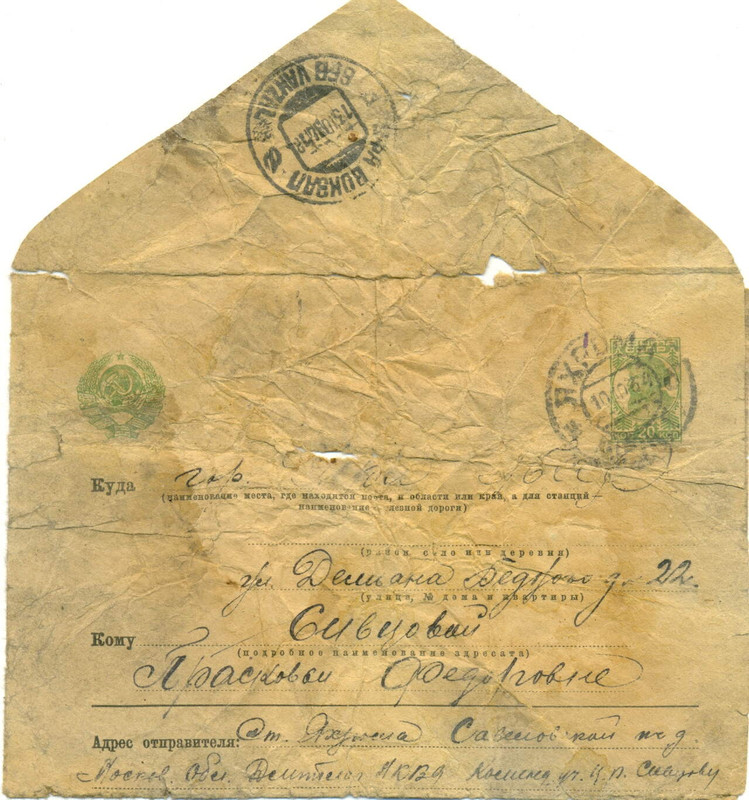 УФА ВОКЗАЛ
ӨFӨ VAKZAL
ЯХРОМА
ПОЧТА
20
Куда гор.
(наименование места, где находится почта, и области или края, а для станций
наименование железной дороги)
(район село или деревня)
ул. Демьяна Бедного д. 22.
(улица, № дома и квартиры)
Кому Сивцовой
(подробное наименование адресата)
Прасковьи Федоровне
Адрес отправителя: Ст. Яхрома Савеловской ж д.
Москов. Обл. Дмитлаг НКВД